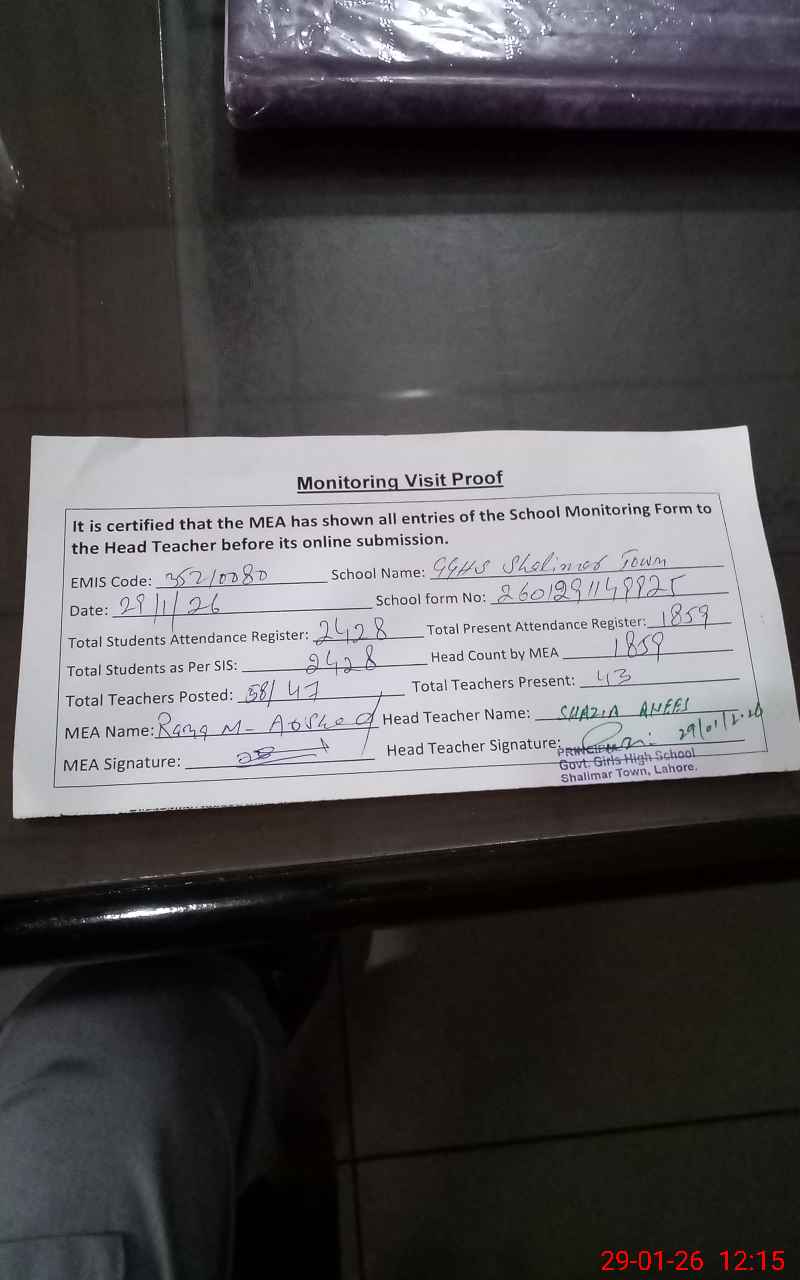 Monitoring Visit Proof
It is certified that the MEA has shown all entries of the School Monitoring Form to
the Head Teacher before its online submission.
EMIS Code: 35210080 School Name: GGHS Shalimar Town
Date: 29/1/26 School form No:
Total Students Attendance Register: 2428 Total Present Attendance Register: 1859
Total Students as Per SIS: 2428 Head Count by MEA 1859
Total Teachers Posted: 58/47 Total Teachers Present: 43
MEA Name: Rana M- Head Teacher Name: SHAZIA ANEES
MEA Signature: Head Teacher Signature: 29/01/2026
PRINCIPAL
Govt. Girls High School
Shalimar Town, Lahore.
29-01-26 12:15